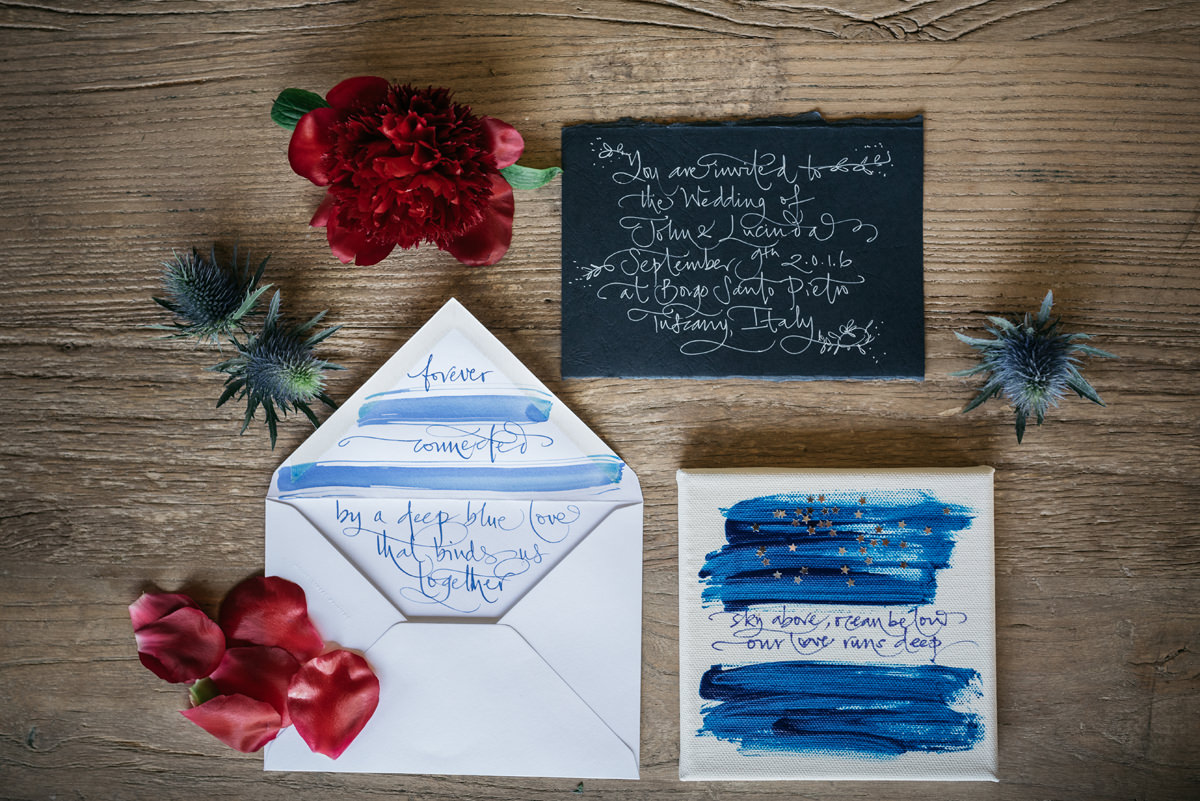 You are invited to
the Wedding of
John & Lucinda
September 9th 2.0.1.6
at Borgo Santo Pietro
Tuscany, Italy
forever
connected
by a deep blue love
that binds us
together
sky above, ocean below
our love runs deep